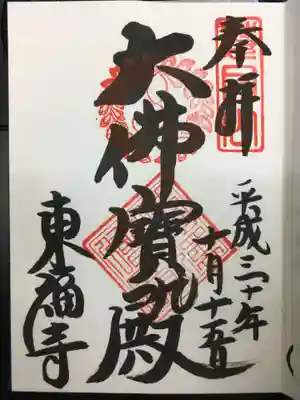 奉拝
平成三十年
十月十五日
大佛寳殿
東福寺